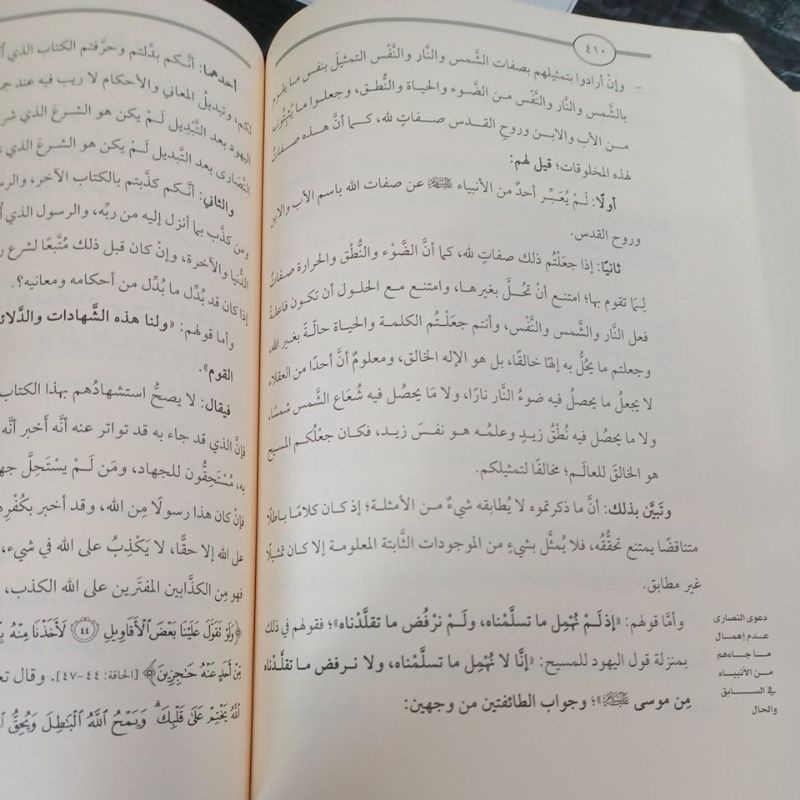 ٤١٠
- وإنْ أرادوا بتمثيلهم بصفات الشَّمس والنَّار والنَّفْس التمثيلَ بنفس ما يقوم
بالشَّمس والنَّار والنَّفْس مـن الضَّـوء والحياة والنُّطـق، وجعلـوا ما يُثْبِتُونه
مـن الأب والابـن وروحِ القدس صـفاتٍ لله، كـما أنَّ هـذه صـفاتٌ
لهذه المخلوقات؛ قيل لهم:
أولًا: لَـمْ يُعَبِّـر أحدٌ مـن الأنبيـاء ﷺ عن صفات الله باسم الأب والابن
وروح القدس.
ثانيًا: إذا جعَلْتُم ذلك صفاتٍ لله، كما أنَّ الضَّوْء والنُّطْق والحرارة صفاتٌ
لِـمَا تقوم بها؛ امتنع أنْ تحُلَّ بغيرهـا، وامتنع مـع الحلول أن تكون فاعلةً
فعل النَّار والشَّمس والنَّفْس، وأنتم جعَلْتُم الكلمة والحياة حالَّةً بغير الله،
وجعلتم ما يحُلُّ به إلهًا خالقًا، بل هو الإله الخالق، ومعلومٌ أنَّ أحدًا من العقلاء
لا يجعلُ ما يحصلُ فيه ضوءُ النَّار نارًا، ولا مَا يحصُل فيه شُعَاع الشَّمس شمسًا،
ولا ما يحصُل فيه نُطْقُ زيـدٍ وعلمُـه هـو نفـسَ زيـد، فكـان جعْلُكـم المسيح
هو الخالقَ للعالَـم؛ مخالفًا لتمثيلكم.
وتَبيَّن بذلك: أنَّ ما ذكرتموه لا يُطابقه شيءٌ مـن الأمثلـة؛ إذ كـان كلامًا بـاطلًا
متناقضًا يمتنع تحقُّقُه، فلا يُمثَّل بشيءٍ من الموجودات الثَّابتة المعلومة إلا كان تمثيلًا
غير مطابق.
وأمَّا قولهم: «إذ لم نُهْمِل ما تسلَّمناه، ولَـمْ نَرْفُض ما تقلَّدناه»؛ فقولهم في ذلك
بمنزلة قول اليهود للمسيح: «إنَّا لا نُهْمِل ما تسلَّمناه، ولا نـرفض ما تقلَّدناه
مِن موسى ﷺ»؛ وجواب الطائفتين من وجهين:
دعوى النصارى
عـدم إهمـال
مـا جـاءهم
مـن الأنبيـاء
في السـابق
والحال
أحدهما: أنَّكـم بدَّلتم وحرَّفتم الكتاب الذي
لكم، وتبديلُ المعاني والأحكام لا ريب فيه عند
اليهود بعد التَّبديل لَـمْ يكن هو الشرعَ الذي
النَّصارى بعد التَّبديل لَـمْ يكن هو الشرعَ الذي
والثاني: أنَّكـم كذَّبتم بالكتاب الآخر،
ومن كذَّب بما أنزل إليه من ربِّه، والرسول الذي
الدُّنيا والآخرة، وإنْ كان قبل ذلك مُتَّبعًا لشرع
إذا كان قد بُدِّل ما بُدِّل من أحكامه ومعانيه؟.
وأما قولهم: «ولنا هذه الشَّهادات والدَّلائل
القوم».
فيقال: لا يصحُّ استشهادُهم بهذا الكتاب
فإنَّ الذي قد جاء به قد تواتر عنه أنَّه أخبر أنَّه
به، مُسْتَحِقُّون للجهاد، ومَن لَـمْ يسْتَحِلَّ
فإنْ كان هذا رسولًا مِن الله، وقد أخبر بكُفْرِهم
على الله إلا حقًّا، لا يَكْذِبُ على الله في شيء،
فهو مِن الكذَّابين المفتَرين على الله الكذب،
﴿وَلَوْ تَقَوَّلَ عَلَيْنَا بَعْضَ ٱلْأَقَاوِيلِ ﴿٤٤﴾ لَأَخَذْنَا مِنْهُ
مِّنْ أَحَدٍ عَنْهُ حَـٰجِزِينَ﴾ [الحاقة: ٤٤-٤٧]. وقال
ٱللَّهُ يَخْتِمْ عَلَىٰ قَلْبِكَ ۗ وَيَمْحُ ٱللَّهُ ٱلْبَـٰطِلَ وَيُحِقُّ